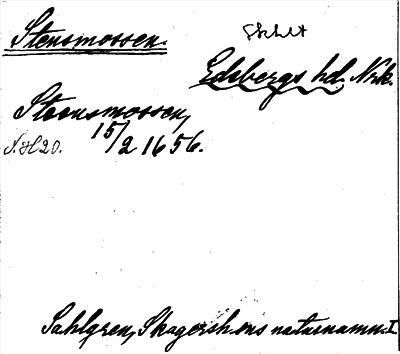 Stensmossen.
Edsbergs hd. Nrk.
Steensmossen,
15/2 1656.
N.H 20.
Sahlgren, Skagershons naturnamn. I